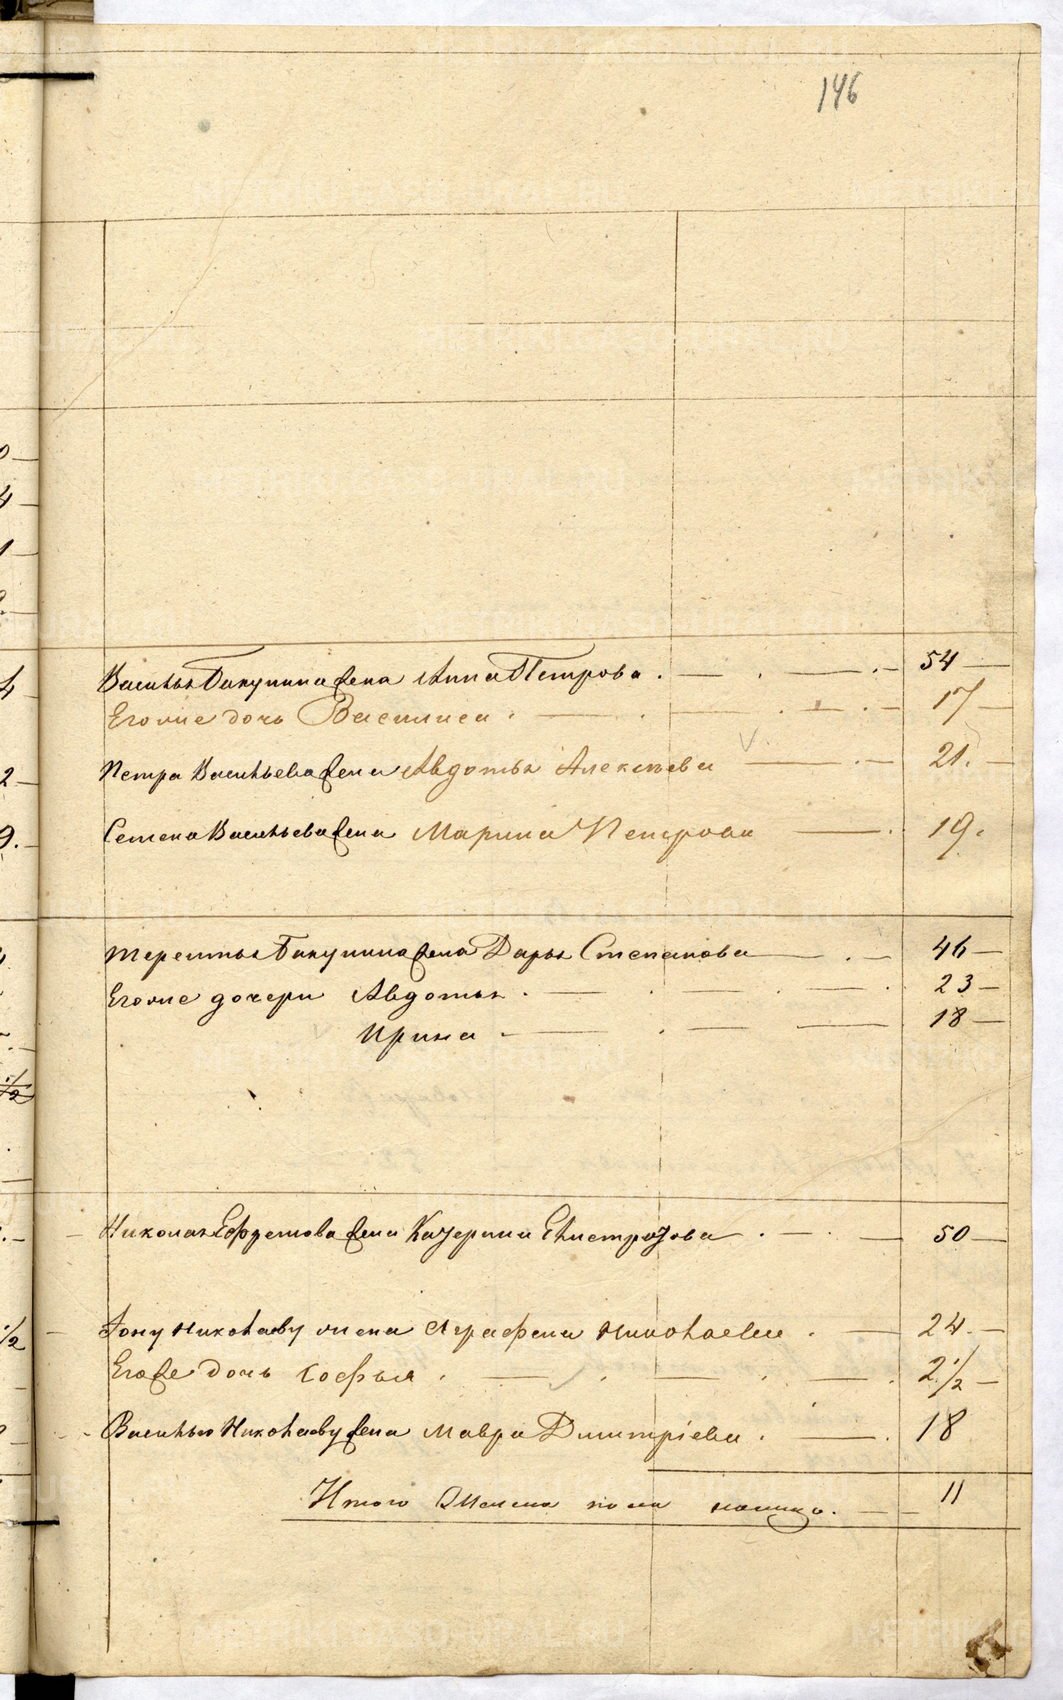 146
Василья Бакунина жена Анна Петрова 54
Его же дочь Василиса 17
Петра Васильева жена Авдотья Алексеева 21.
Семена Васильева жена Марина Петрова 19.
Терентья Бакунина жена Дарья Степанова 46
Его же дочери Авдотья 23
Ирина 18
Николая Ефремова жена Катерина 50
Николаеву жена Аграфена Николаева 24.
Его же дочь Софья 2 1/2
Василью Николаеву жена Мавра Дмитріева 18
Итого женска пола на лицо. 11